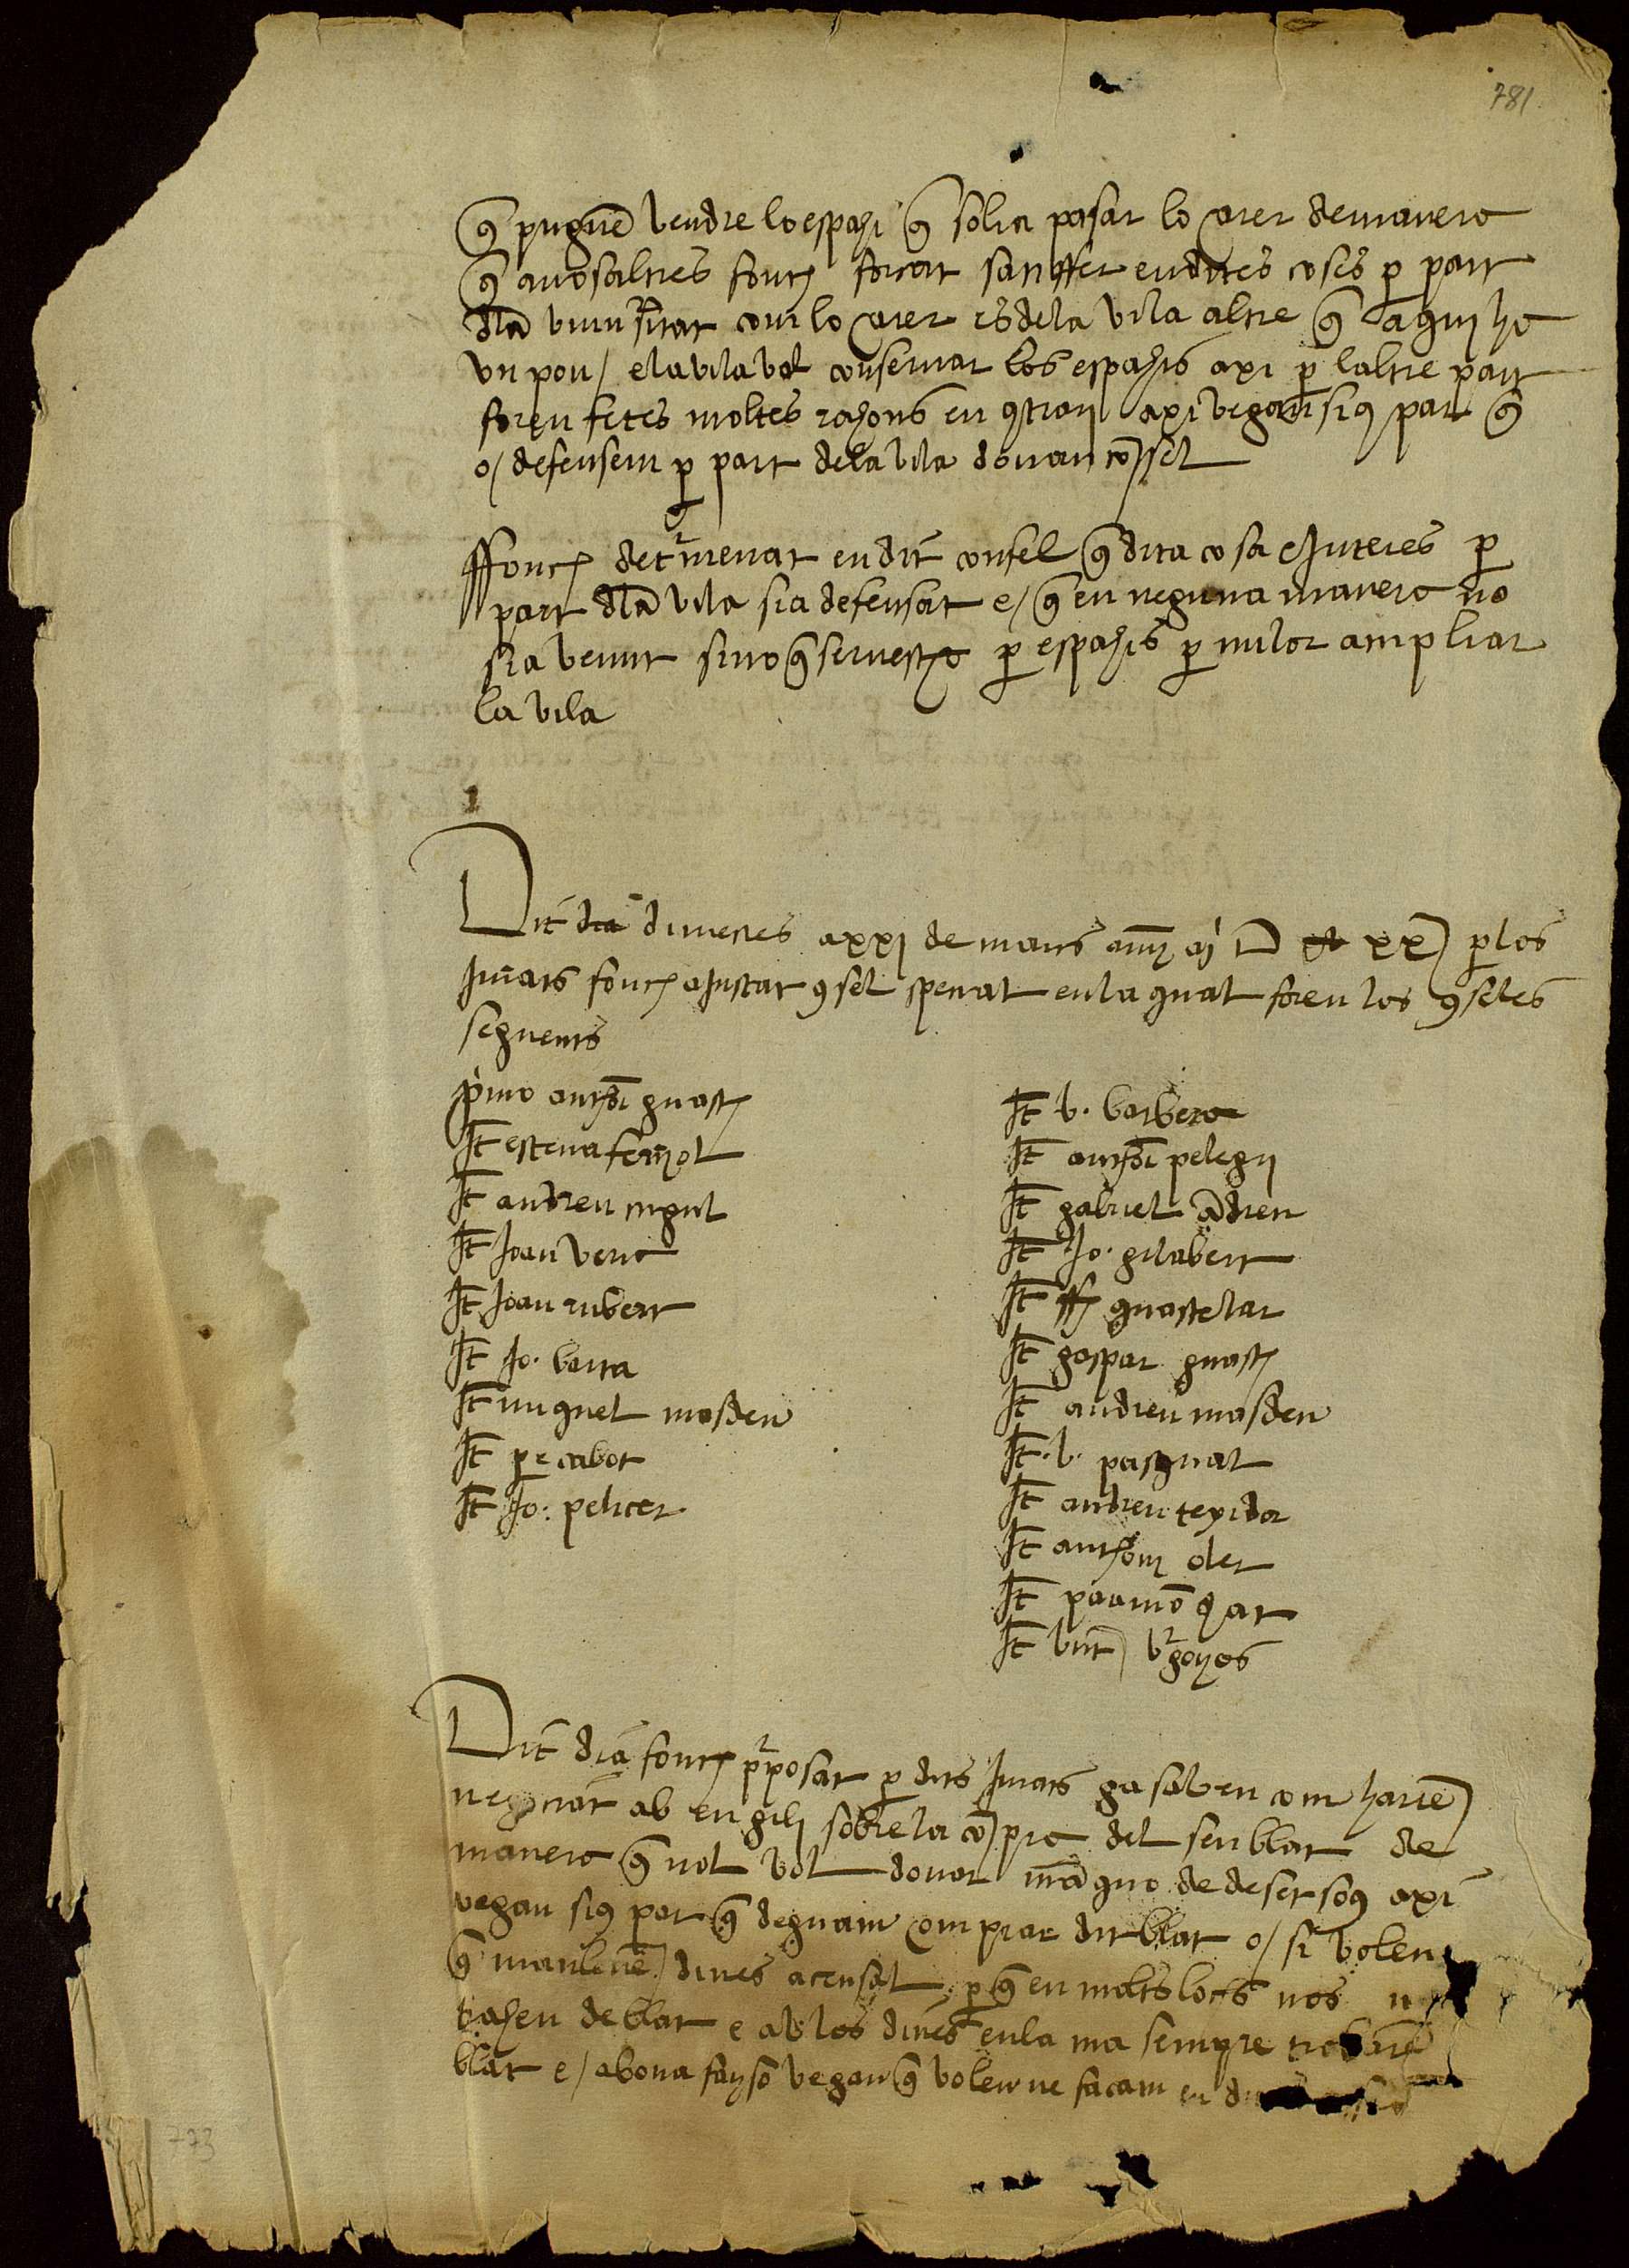 781
q̄ pugnē vendre lo espahi q̄ solia pasar lo carer de manera
q̄ a nosaltres fonch forcat satisffer en dites coses p̱ part
dla vniusitat com lo carer es de la vila altre q̄ aqui ha
vn pou / e la vila vol conseruar los espahis axi p̱ laltre part
foren fetes moltes rahons en 9trari axi vegau siꝰ par q̄
o / defensem p̱ part de la vila donau cōsel
ffonch det'menat en dit consel q̄ dita cosa e Interes p̱
part dla vila sia defensat e / q̄ en neguna manera no
sia venut sino q̄ seruesca p̱ espahis p̱ milor ampliar
la vila
Dit dia dimecres a xxj de mars anny M D xx p̱ los
Jurats fonch aJustat 9sel special en la qual foren los 9selés
seguents
primo anthōi guasch
It esteua ferriol
It andreu cugul
It Joan vera
It Joan rubert
It Jo. barra
It miquel masdeu
It p̱e cabot
It Jo. pelicer
It b. barbera
It anthōi pelegri
It gabriel ādreu
It Jo. gilabert
It ff guastelar
It gaspar guasch
It andreu masdeu
It b. pasqual
It andreu texidor
It anthoni oler
It
It vīt v'gonyos
Dit dia fonch p'posat p̱ dits Jurats ja saben com hauē
negociat ab en gili sobre la cōpra del seu blat de
manera q̄ nol vol donar mā quo de deset soꝰ axi
vegau siꝰ par q̄ deguam comprar dit blat o / si volen
q̄ manleuē dines a censal p̱ q̄ en molts locs nos
trahen de blat e ab los dines en la ma sempre trobarē
blat e / a bona fayso vegau q̄ voleu ne facam
773